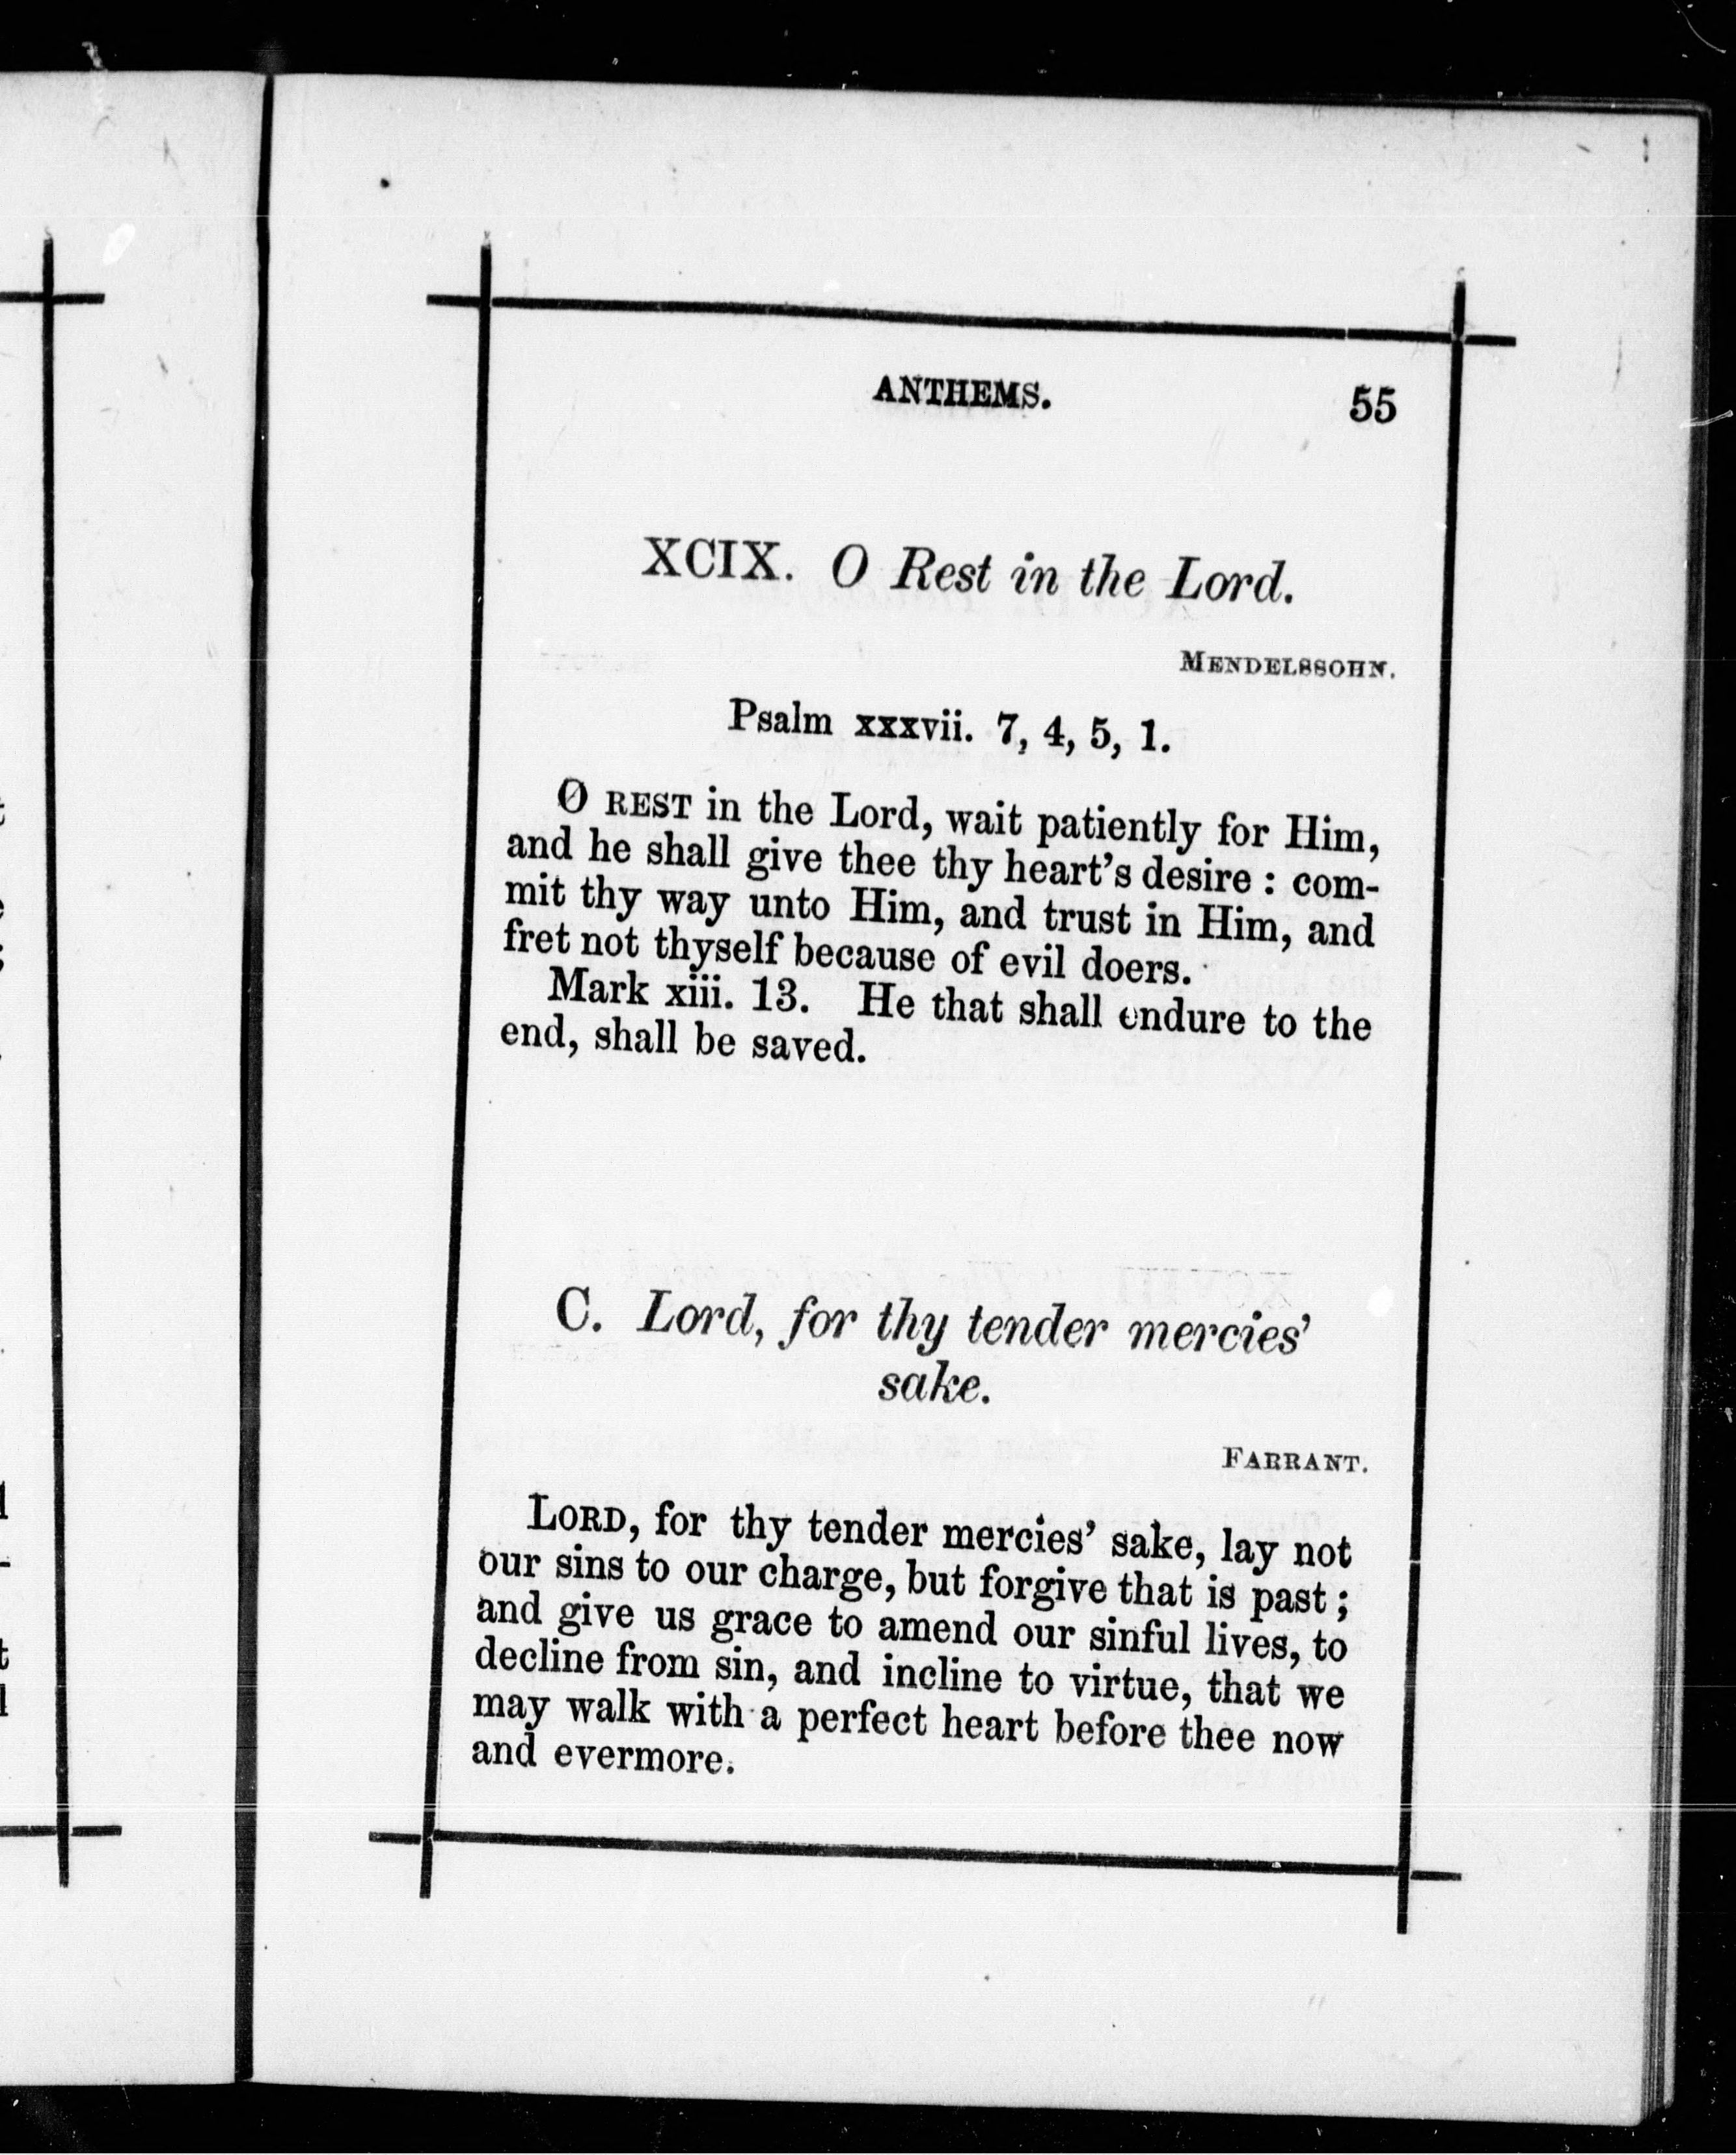 ANTHEMS. 55
XCIX. O Rest in the Lord.
MENDELSSOHN.
Psalm xxxvii. 7, 4, 5, 1.
O REST in the Lord, wait patiently for Him,
and he shall give thee thy heart's desire : com-
mit thy way unto Him, and trust in Him, and
fret not thyself because of evil doers.
Mark xiii. 13. He that shall endure to the
end, shall be saved.
C. Lord, for thy tender mercies'
sake.
FARRANT.
LORD, for thy tender mercies' sake, lay not
our sins to our charge, but forgive that is past ;
and give us grace to amend our sinful lives, to
decline from sin, and incline to virtue, that we
may walk with a perfect heart before thee now
and evermore.